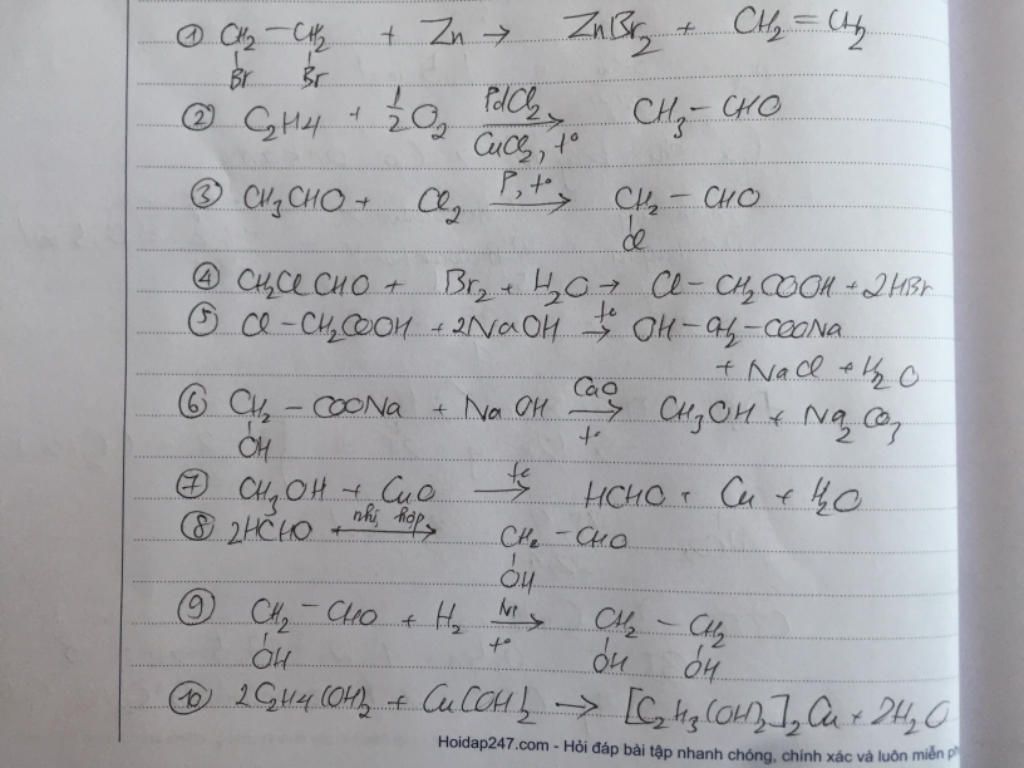 ① CH₂ – CH₂ + Zn → ZnBr₂ + CH₂ = CH₂
Br Br
② C₂H₄ + 1/2 O₂ PdCl₂ → CH₃ – CHO
CuCl₂, t°
③ CH₃CHO + Cl₂ P, t° → CH₂ – CHO
Cl
④ CH₂ClCHO + Br₂ + H₂O → Cl – CH₂COOH + 2HBr
⑤ Cl – CH₂COOH + 2NaOH t° → OH – CH₂ – COONa
+ NaCl + H₂O
⑥ CH₂ – COONa + NaOH CaO → CH₃OH + Na₂CO₃
OH t°
⑦ CH₃OH + CuO t° → HCHO + Cu + H₂O
⑧ 2HCHO nhị hợp → CH₂ – CHO
OH
⑨ CH₂ – CHO + H₂ Ni → CH₂ – CH₂
OH t° OH OH
⑩ 2C₂H₄(OH)₂ + Cu(OH)₂ → [C₂H₃(OH)₂]₂Cu + 2H₂O
Hoidap247.com - Hỏi đáp bài tập nhanh chóng, chính xác và luôn miễn ph